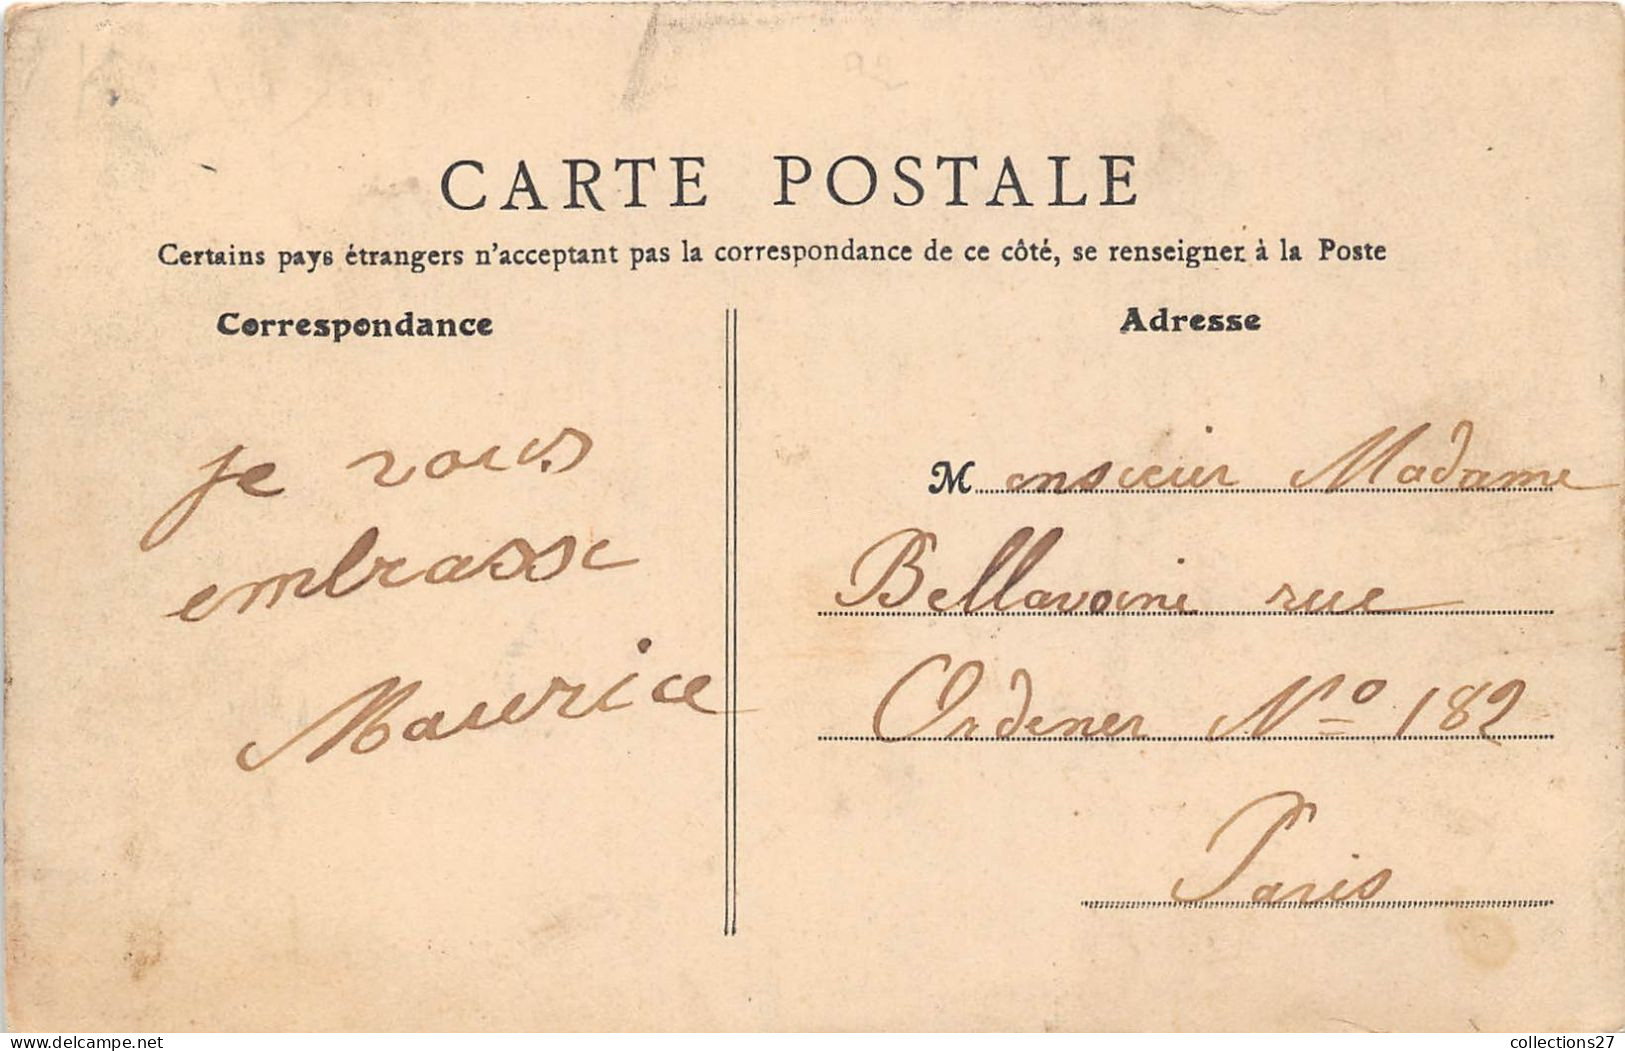 CARTE POSTALE
Certains pays étrangers n'acceptant pas la correspondance de ce côté, se renseigner à la Poste
Correspondance
je vous
embrasse
Maurice
Adresse
Monsieur Madame
Bellavoine rue
Ordener Nº 182
Paris
delcampe.net
collections27